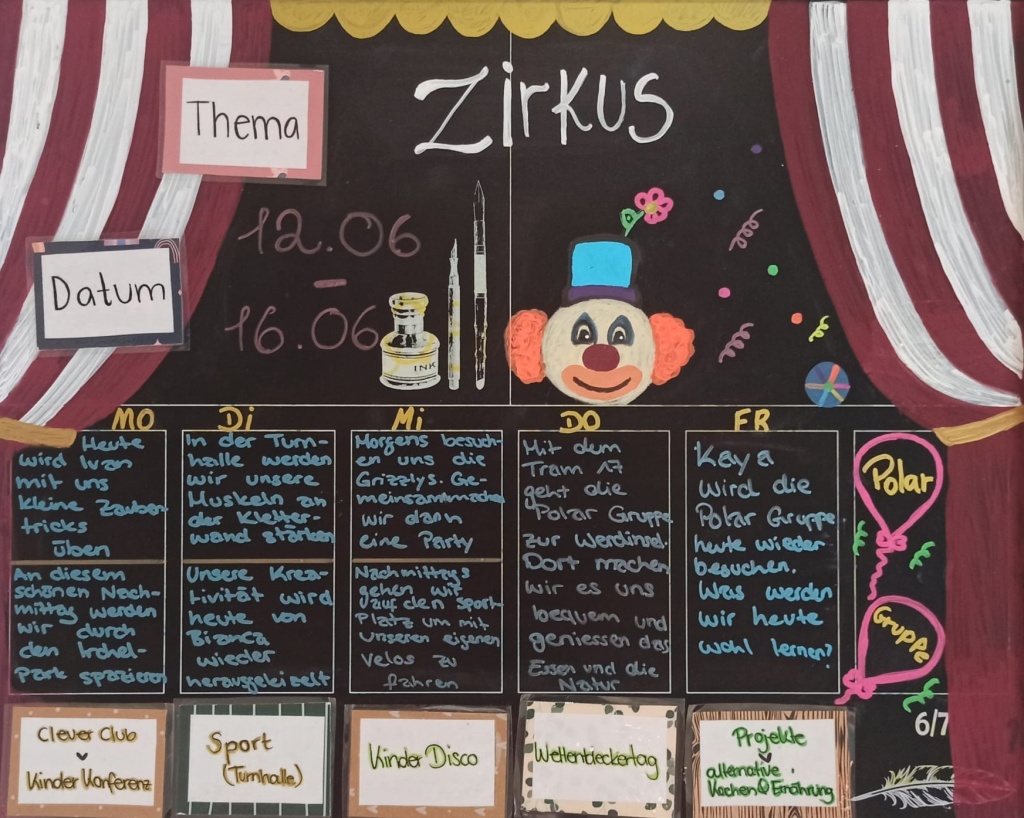 Thema
Zirkus
Datum
12.06
-
16.06
INK
MO
Heute
wird Ivan
mit uns
kleine Zauber
tricks
üben
An diesem
schönen Nach-
mittag werden
wir durch
den Irchel-
Park spazieren
Di
In der Turn-
halle werden
wir unsere
Muskeln an
der Kletter-
wand stärken
Unsere Krea-
tivität wird
heute von
Bianca
wieder
herausgekitzelt
Mi
Morgens besuch-
en uns die
Grizzlys. Ge-
meinsam machen
wir dann
eine Party
Nachmittags
gehen wir
auf den Sport
Platz um mit
unseren eigenen
Velos zu
fahren
DO
Mit dem
Tram 17
geht die
Polar Gruppe
zur Werdinsel.
Dort machen
wir es uns
bequem und
geniessen das
Essen und die
Natur
FR
Kaya
wird die
Polar Gruppe
heute wieder
besuchen.
Was werden
wir heute
wohl lernen?
Polar
Gruppe
Clever Club
Kinder Konferenz
Sport
(Turnhalle)
Kinder Disco
Weltentdeckertag
Projekte
alternative
Kochen & Ernährung
6/7